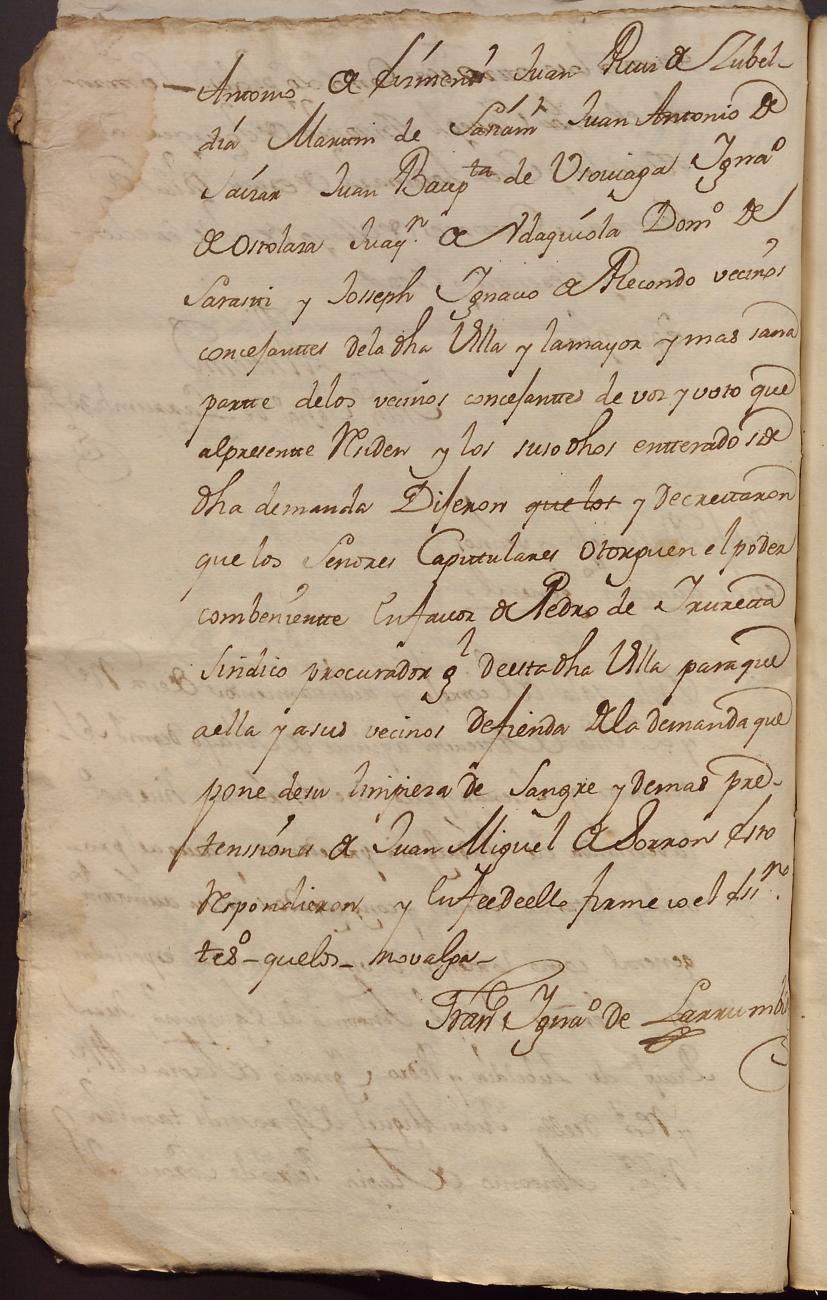 Antonio de Armendi Juan Ruiz de Zubel-
dia Martin de Juan Antonio de
Saizar Juan Baupta de Usoviaga Ignao
de Ostolaza Juaqn de Udaquiola Domo de
Sarasti y Josseph Ignacio de Recondo vecinos
concejantes dela dha Villa y lamayor y mas sana
partte delos vecinos concejanttes de voz y voto que
alpresentte Residen y los susodhos entterados de
dha demanda Dijeron que los y decrettaron
que los Señores Capittulares Otorguen el poder
combenientte En favor de Pedro de Iruretta
Sindico procurador gl deesta dha Villa para que
aella y asus vecinos defienda dela demanda que
pone desu limpieza de Sangre y demas pre-
tensiones de Juan Miguel de Sorron Esto
Respondieron y En feedeello firme yo el Essno.
tedo – quelos – novalga –
Frano Ignao de Larrumbi